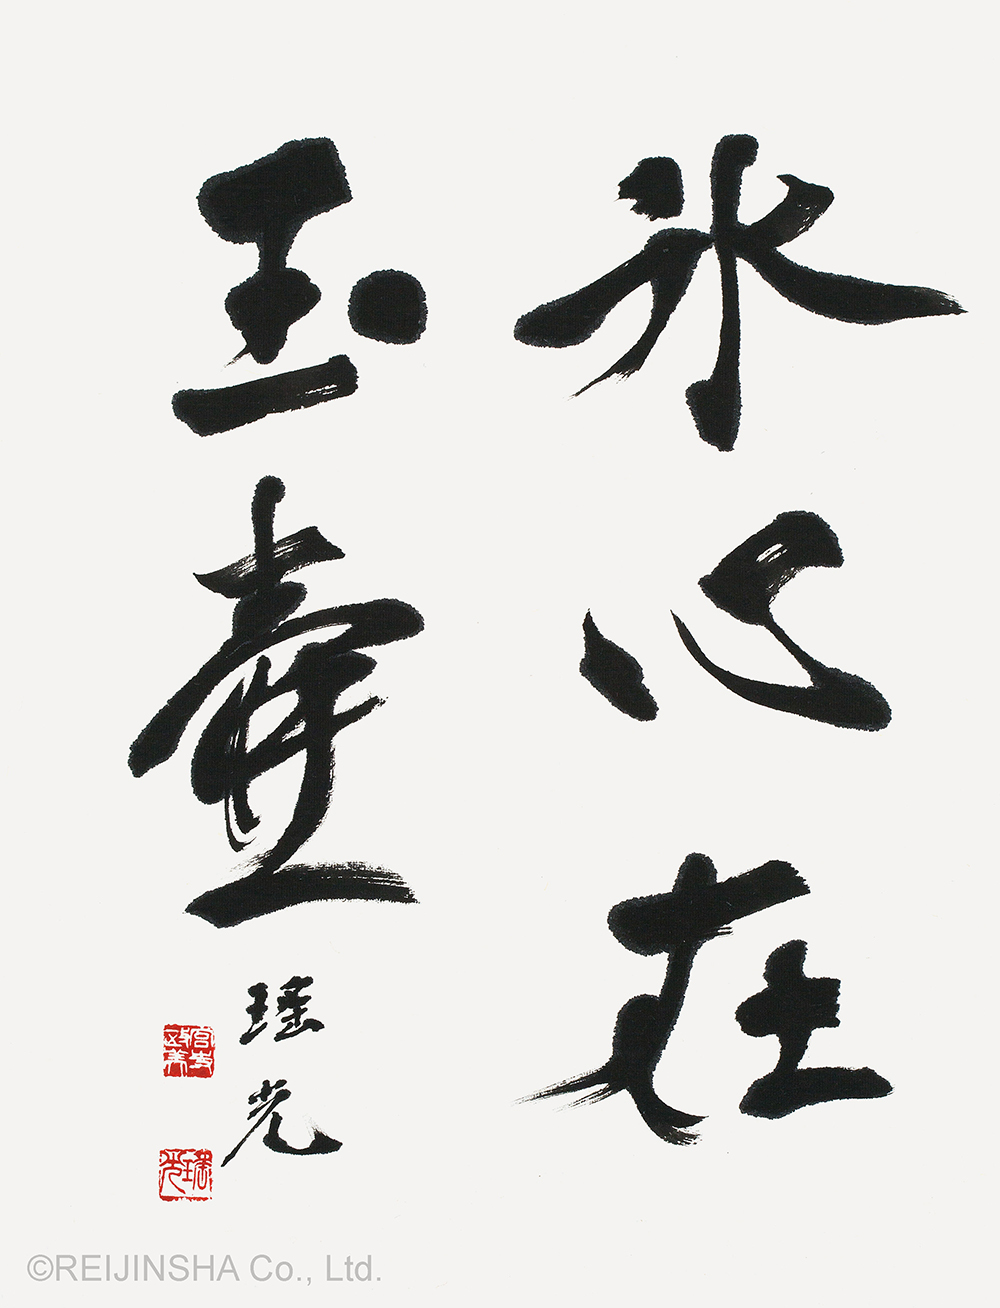 氷心在
玉壷
瑶光
瑶光
©REIJINSHA Co., Ltd.